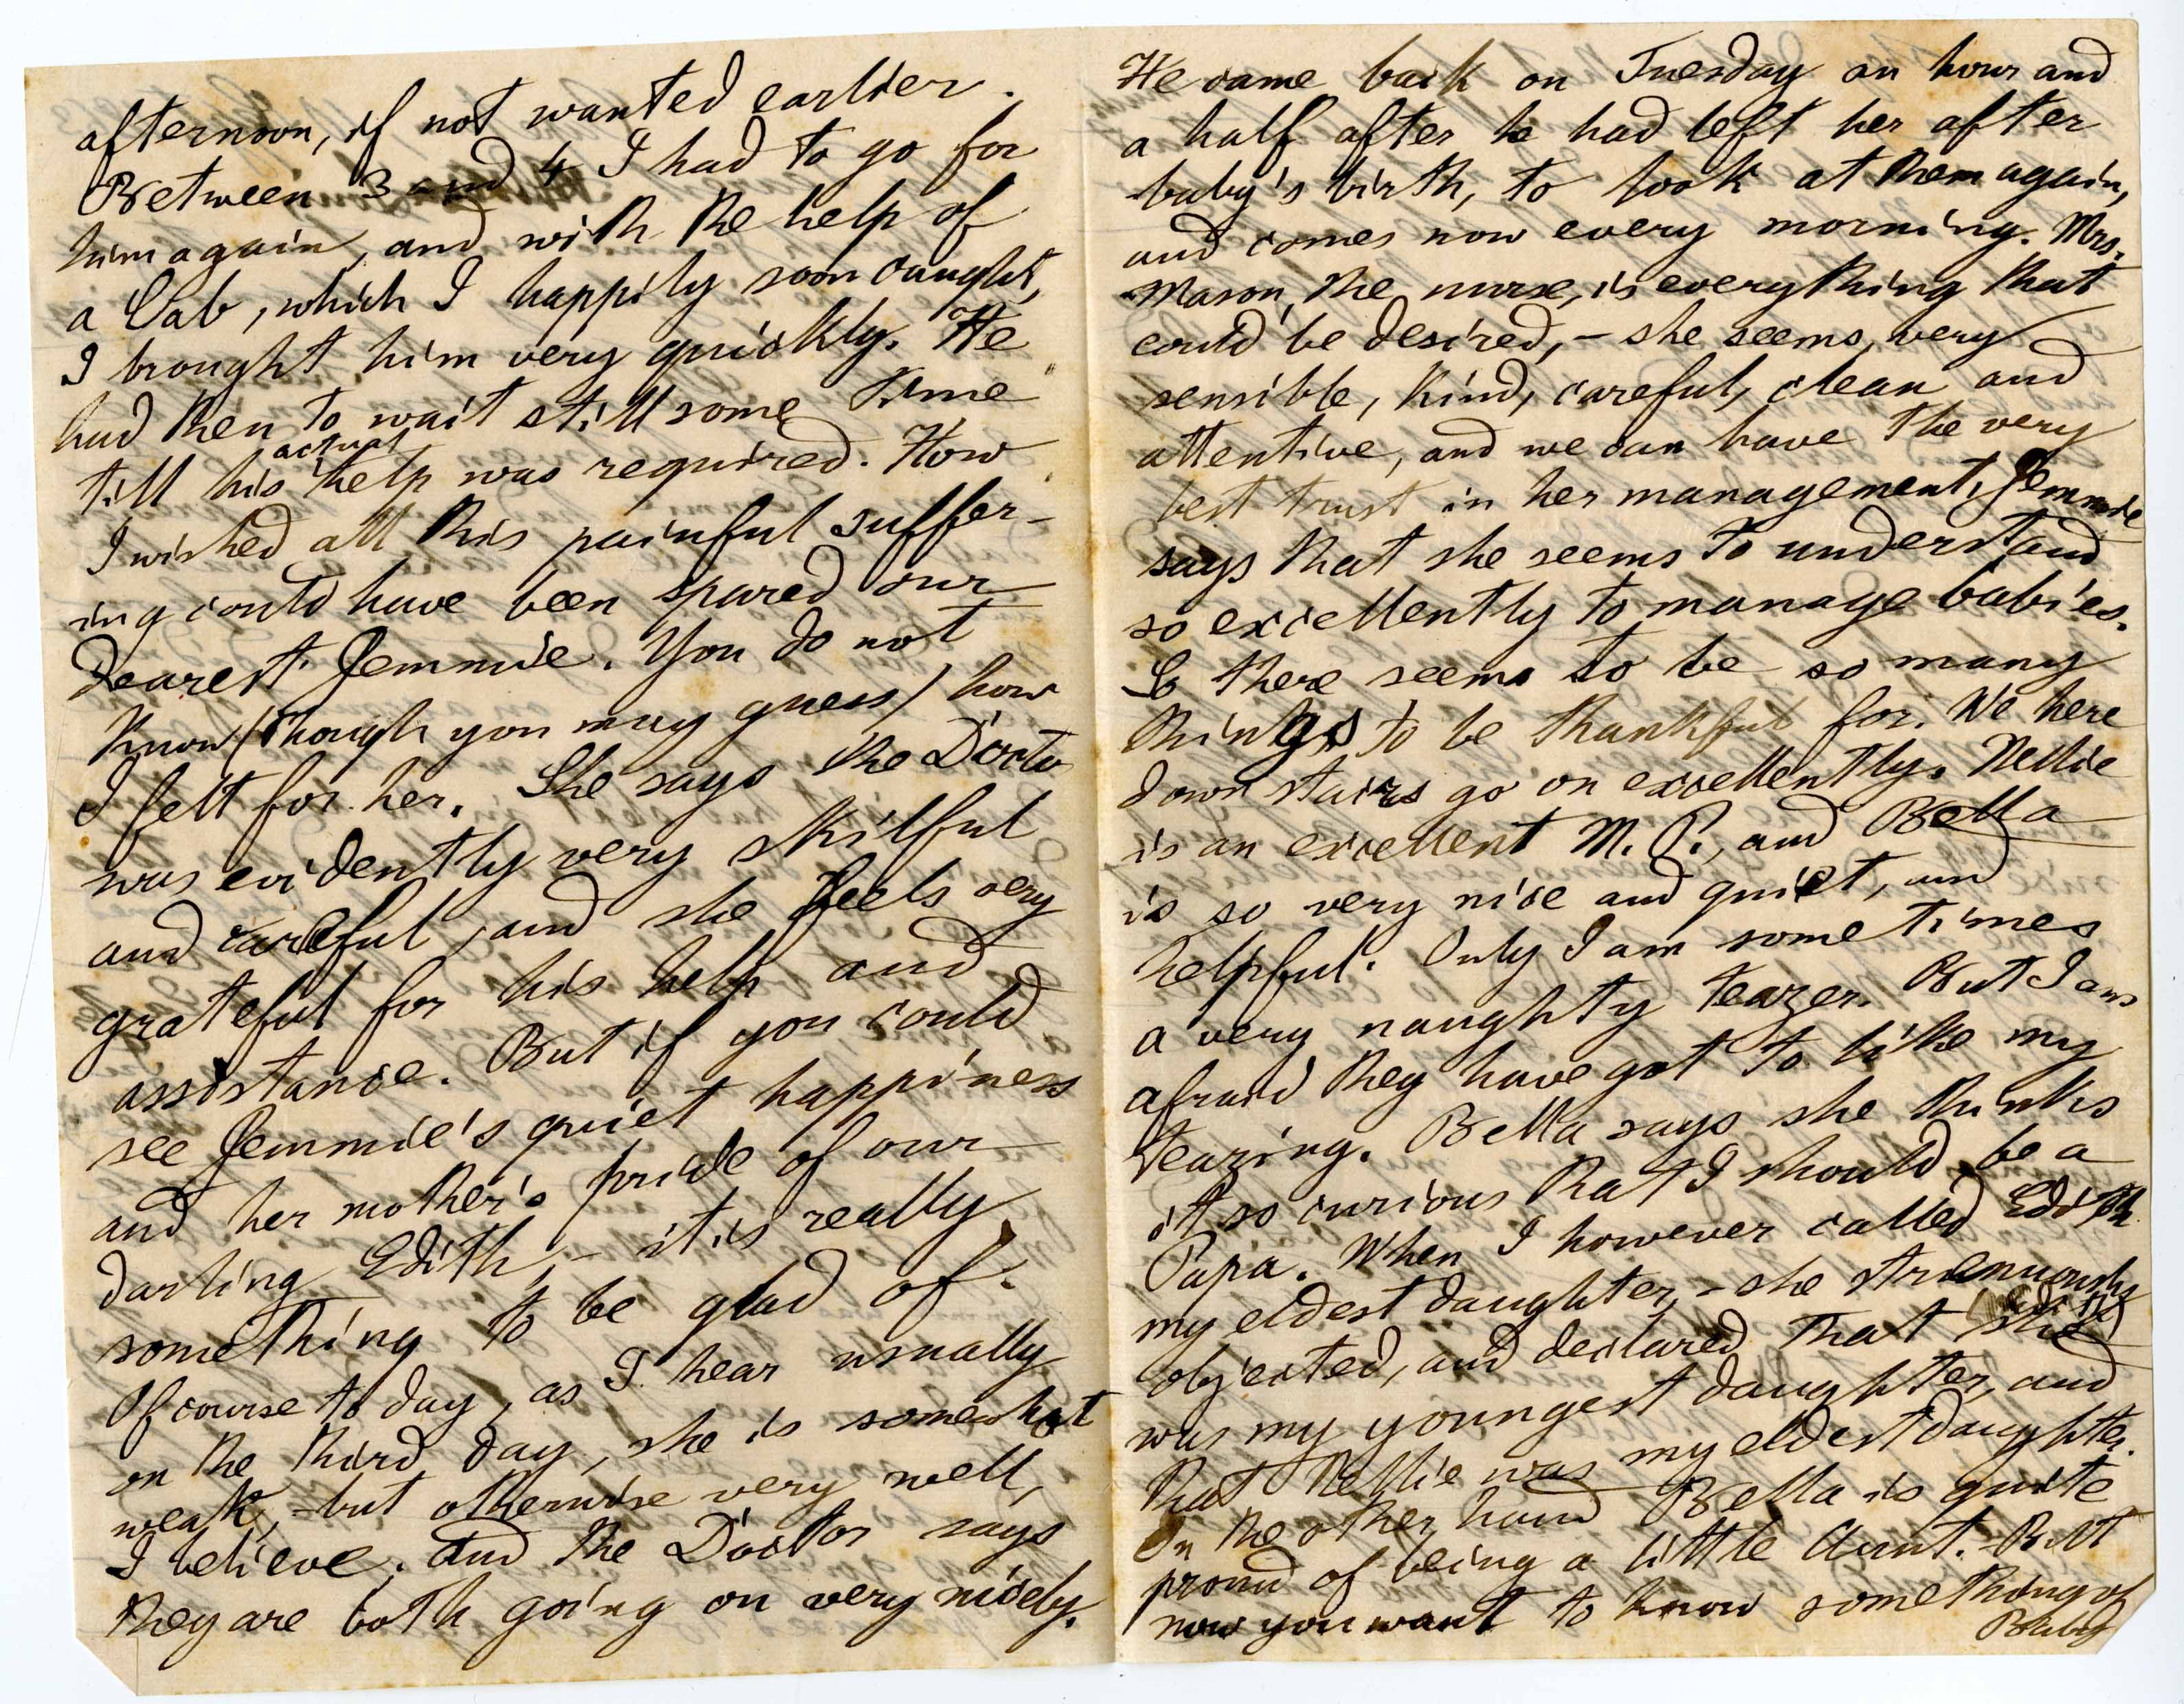 afternoon, if not wanted earlier.
Between 3 and 4 I had to go for
him again, and with the help of
a Cab, which I happily soon caught,
I brought him very quickly. He
had then to wait still some time
actual
till his help was required. How
I wished all this painful suffer-
ing could have been spared our
dearest Jemmie. You do not
know (though you may guess) how
I felt for her. She says the Doctor
was evidently very skilful
and careful, and she feels very
grateful for his help and
assistance. But if you could
see Jemmie's quiet happiness
and her mother's pride of our
darling Edith, - it is really
something to be glad of.
Of course to day, as I hear usually
on the third day, she is somewhat
weak, - but otherwise very well,
I believe. And the Doctor says
they are both going on very nicely.
He came back on Tuesday an hour and
a half after he had left her after
baby's birth, to look at them again,
and comes now every morning. Mrs.
Mason, the nurse, is everything that
could be desired, - she seems very
sensible, kind, careful, clean and
attentive, and we can have the very
best trust in her management. Jemmie
says that she seems to understand
so excellently to manage babies.
So there seems to be so many
things to be thankful for. We here
down stairs go on excellently. Nellie
is an excellent M. P., and Bella
is so very nice and quiet, and
helpful. Only I am sometimes
a very naughty teazer. But I am
afraid they have got to like my
teazing. Bella says she thinks
it so curious that I should be a
Papa. When I however called Edith
my eldest daughter, - she strenuously
objected, and declared that she
was my youngest daughter, and
that Nellie was my eldest daughter.
On the other hand Bella is quite
proud of being a little Aunt. But
now you want to know something of
Baby